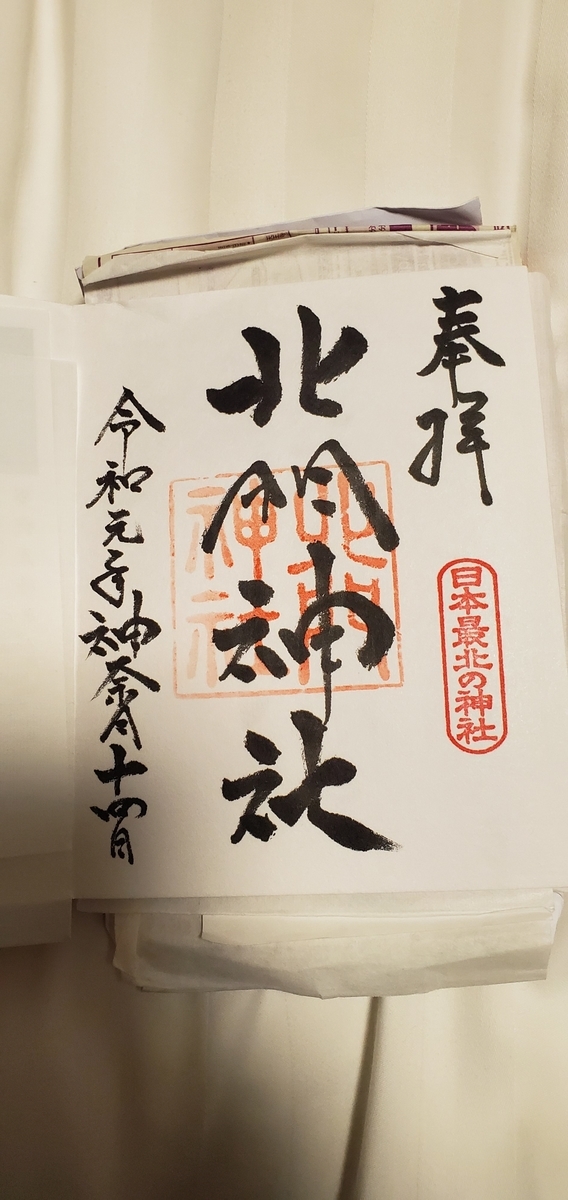 奉拝
日本最北の神社
北門神社
北門
神社
令和元年神奈月十四日